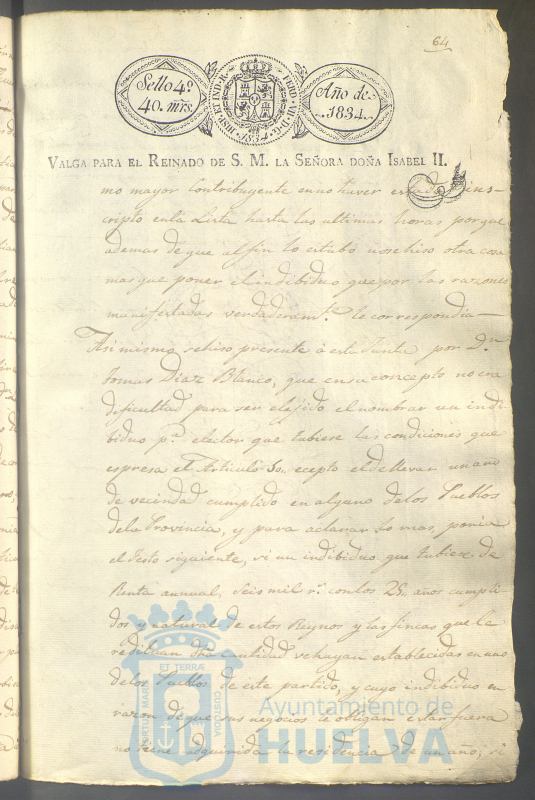 64
Sello 4º
40. mrs.
HISP. ET IND. R. FERD. VII. D. G.
Año de
1834.
VALGA PARA EL REINADO DE S. M. LA SEÑORA DOÑA ISABEL II.
mo mayor Contribuyente en no haver estado ines-
cripto en la Lista hasta las ultimas horas porque
ademas de que al fin lo estubo no se hiso otra cosa
mas que poner el indibiduo que por las razones
manifestadas verdaderamte. le correspondia
Asi mismo se hiso presente á esta Junta por Dn.
Tomas Diaz Blanco, que en su concepto no era
dificultad para ser elejido el nombrar un indi-
biduo pa. elector que tubiese las condiciones que
espresa el Articulo 30. ecepto el de llevar un año
de vecindad cumplido en alguno de los Pueblos
de la Provincia, y para aclararlo mas, ponia
el testo siguiente, si un indibiduo que tubiese de
Renta annual, seis mil rs. con los 25. años cumpli-
dos y natural de estos Reynos y las fincas que le
redituan dha cantidad se hayan establecidas en uno
de los Pueblos de este partido, y cuyo indibiduo en
razon de que sus negocios le obligan estar fuera
no tiene adquirida la residencia de un año, si
PORTUS MARIS ET TERRÆ CUSTODIA
Ayuntamiento de
HUELVA